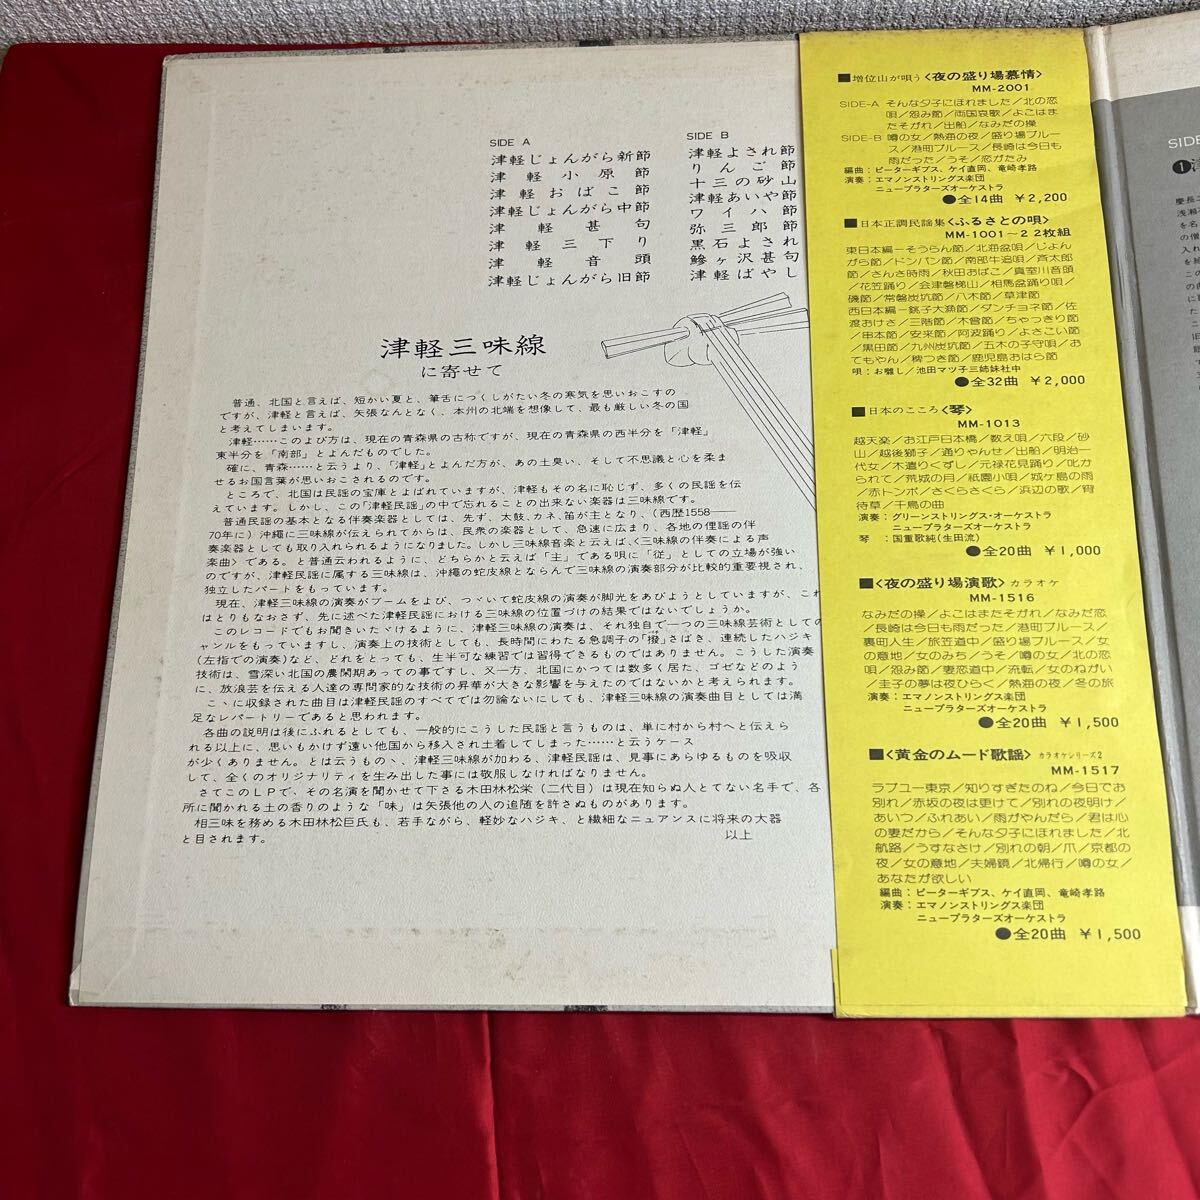 SIDE A
津軽じょんがら新節
津軽小原節
津軽おばこ節
津軽じょんがら中節
津軽甚句
津軽三下り
津軽音頭
津軽じょんがら旧節
SIDE B
津軽よされ節
りんご節
十三の砂山
津軽あいや節
ワイハ節
弥三郎節
黒石よされ
鰺ヶ沢甚句
津軽ばやし
津軽三味線
に寄せて
普通、北国と言えば、短かい夏と、筆舌につくしがたい冬の寒気を思いおこすの
ですが、津軽と言えば、矢張なんとなく、本州の北端を想像して、最も厳しい冬の国
と考えてしまいます。
津軽……このよび方は、現在の青森県の古称ですが、現在の青森県の西半分を「津軽」
東半分を「南部」とよんだものでした。
確に、青森……と云うより、「津軽」とよんだ方が、あの土臭い、そして不思議と心を柔ま
せるお国言葉が思いおこされるのです。
ところで、北国は民謡の宝庫とよばれていますが、津軽もその名に恥じず、多くの民謡を伝
えています。しかし、この「津軽民謡」の中で忘れることの出来ない楽器は三味線です。
普通民謡の基本となる伴奏楽器としては、先ず、太鼓、カネ、笛が主となり、(西歴1558―
70年に)沖縄に三味線が伝えられてからは、民衆の楽器として、急速に広まり、各地の俚謡の伴
奏楽器としても取り入れられるようになりました。しかし三味線音楽と云えば、〈三味線の伴奏による声
楽曲〉である。と普通云われるように、どちらかと云えば「主」である唄に「従」としての立場が強い
のですが、津軽民謡に属する三味線は、沖縄の蛇皮線とならんで三味線の演奏部分が比較的重要視され、
独立したパートをもっています。
現在、津軽三味線の演奏がブームをよび、つヾいて蛇皮線の演奏が脚光をあびようとしていますが、これ
はとりもなおさず、先に述べた津軽民謡における三味線の位置づけの結果ではないでしょうか。
このレコードでもお聞きいたヾけるように、津軽三味線の演奏は、それ独自で一つの三味線芸術としての
ャンルをもっていますし、演奏上の技術としても、長時間にわたる急調子の「撥」さばき、連続したハジキ
(左指での演奏)など、どれをとっても、生半可な練習では習得できるものではありません。こうした演奏
技術は、雪深い北国の農閑期あっての事ですし、又一方、北国にかつては数多く居た、ゴゼなどのよう
に、放浪芸を伝える人達の専門家的な技術の昇華が大きな影響を与えたのではないかと考えられます。
こヽに収録された曲目は津軽民謡のすべてでは勿論ないにしても、津軽三味線の演奏曲目としては満
足なレパートリーであると思われます。
各曲の説明は後にふれるとしても、一般的にこうした民謡と言うものは、単に村から村へと伝えら
れる以上に、思いもかけず遠い他国から移入され土着してしまった……と云うケース
が少くありません。とは云うものヽ、津軽三味線が加わる、津軽民謡は、見事にあらゆるものを吸収
して、全くのオリジナリティを生み出した事には敬服しなければなりません。
さてこのLPで、その名演を聞かせて下さる木田林松栄(二代目)は現在知らぬ人とてない名手で、各
所に聞かれる土の香りのような「味」は矢張他の人の追随を許さぬものがあります。
相三味を務める木田林松巨氏も、若手ながら、軽妙なハジキ、と繊細なニュアンスに将来の大器
と目されます。
以上
■増位山が唄う〈夜の盛り場慕情〉
MM-2001
SIDE-A そんな夕子にほれました/北の恋
唄/怨み節/両国哀歌/よこはま
たそがれ/出船/なみだの操
SIDE-B 噂の女/熱海の夜/盛り場ブルー
ス/港町ブルース/長崎は今日も
雨だった/うそ/恋がたみ
編曲:ピーターギブス、ケイ直岡、竜崎孝路
演奏:エマノンストリングス楽団
ニュープラターズオーケストラ
●全14曲 ¥2,200
■日本正調民謡集〈ふるさとの唄〉
MM-1001〜2 2枚組
東日本編ーそうらん節/北海盆唄/じょん
がら節/ドンパン節/南部牛追唄/斉太郎
節/さんさ時雨/秋田おばこ/真室川音頭
/花笠踊り/会津磐梯山/相馬盆踊り唄/
磯節/常磐炭坑節/八木節/草津節
西日本編ー銚子大漁節/ダンチョネ節/佐
渡おけさ/三階節/木曾節/ちゃっきり節
/串本節/安来節/阿波踊り/よさこい節
/黒田節/九州炭坑節/五木の子守唄/お
てもやん/稗つき節/鹿児島おはら節
唄:お囃し/池田マツ子三姉妹社中
●全32曲 ¥2,000
■日本のこころ〈琴〉
MM-1013
越天楽/お江戸日本橋/数え唄/六段/砂
山/越後獅子/通りゃんせ/出船/明治一
代女/木遣りくずし/元禄花見踊り/叱か
られて/荒城の月/祇園小唄/城ヶ島の雨
/赤トンボ/さくらさくら/浜辺の歌/宵
待草/千鳥の曲
演奏:グリーンストリングス・オーケストラ
ニュープラターズオーケストラ
琴 :国重歌純(生田流)
●全20曲 ¥1,000
■〈夜の盛り場演歌〉カラオケ
MM-1516
なみだの操/よこはまたそがれ/なみだ恋
/長崎は今日も雨だった/港町ブルース/
裏町人生/旅笠道中/盛り場ブルース/女
の意地/女のみち/うそ/噂の女/北の恋
唄/怨み節/妻恋道中/流転/女のねがい
/圭子の夢は夜ひらく/熱海の夜/冬の旅
演奏:エマノンストリングス楽団
ニュープラターズオーケストラ
●全20曲 ¥1,500
■〈黄金のムード歌謡〉カラオケシリーズ2
MM-1517
ラブユー東京/知りすぎたのね/今日でお
別れ/赤坂の夜は更けて/別れの夜明け/
あいつ/ふれあい/雨がやんだら/君は心
の妻だから/そんな夕子にほれました/北
航路/うすなさけ/別れの朝/爪/京都の
夜/女の意地/夫婦鏡/北帰行/噂の女/
あなたが欲しい
編曲:ピーターギブス、ケイ直岡、竜崎孝路
演奏:エマノンストリングス楽団
ニュープラターズオーケストラ
●全20曲 ¥1,500
SIDE
❶津
慶長
浅瀬
を名
の僧
入れ
を
この
の
に
た
こ
旧
節
て